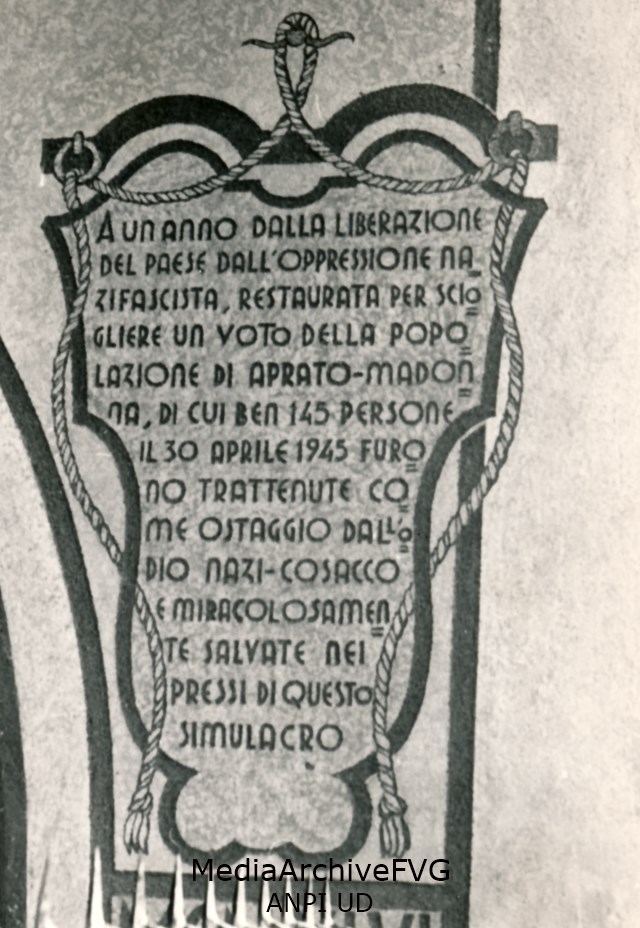 A UN ANNO DALLA LIBERAZIONE
DEL PAESE DALL'OPPRESSIONE NA=
ZIFASCISTA, RESTAURATA PER SCIO=
GLIERE UN VOTO DELLA POPO=
LAZIONE DI APRATO-MADON=
NA, DI CUI BEN 145 PERSONE
IL 30 APRILE 1945 FURO=
NO TRATTENUTE CO=
ME OSTAGGIO DALL'O=
DIO NAZI-COSACCO
E MIRACOLOSAMEN=
TE SALVATE NEI
PRESSI DI QUESTO
SIMULACRO
MediaArchiveFVG
ANPI UD